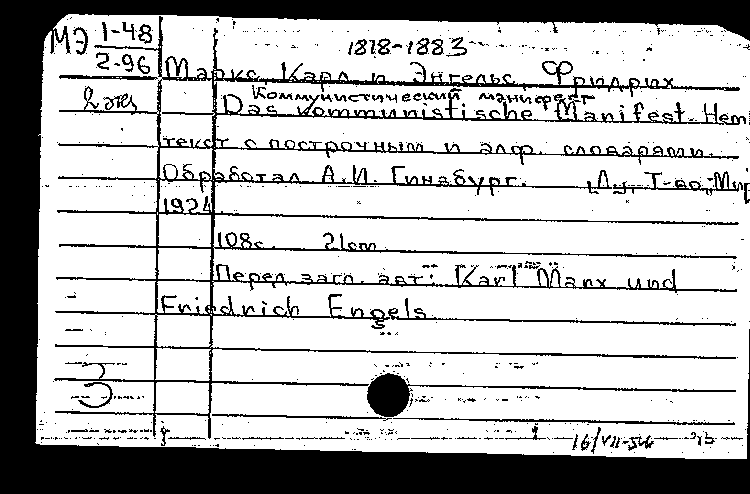 МЭ 1-48
2-96
1818-1883
Маркс, Карл и Энгельс, Фридрих
2 экз
Коммунистический манифест
Das kommunistische Manifest. Нем
текст с построчным и алф. словарями.
Обработал А.И. Гинзбург. Т-во „Мир
1924
108с. 21cm
Перед загл. авт: Karl Marx und
Friedrich Engels.
16/VII-56